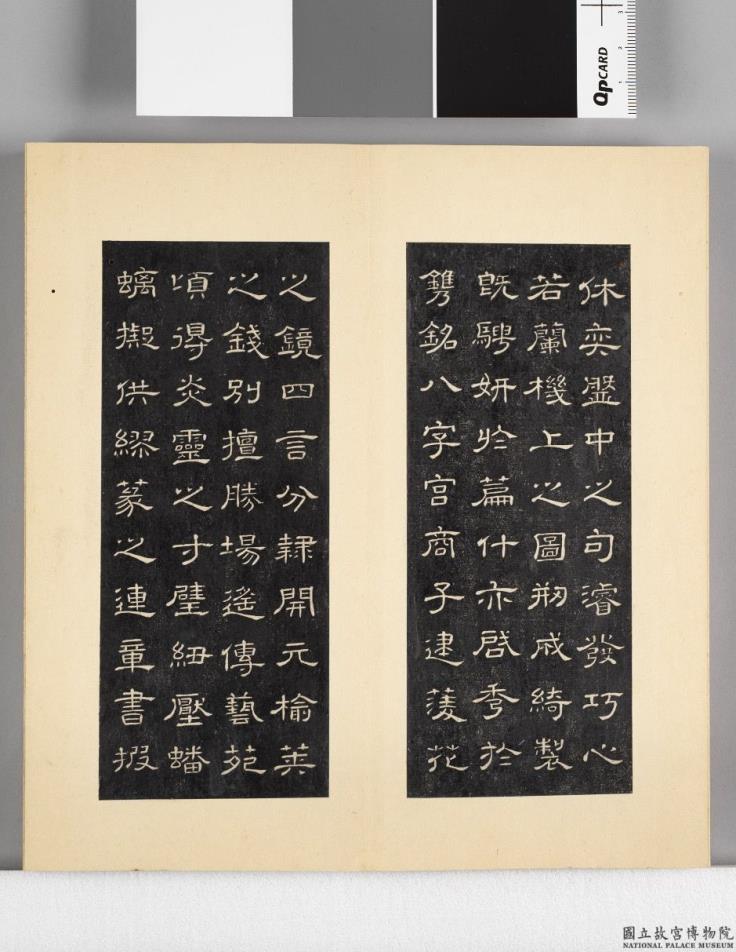 休奕盤中之句濬發巧心
若蘭機上之圖剏成綺製
既騁妍於篇什亦啟秀於
鐫銘八字宮商子建菱花
之鏡四言分隸開元榆莢
之錢別擅勝場遙傳藝苑
頃得炎靈之寸璧紐壓蟠
螭擬供繆篆之連章書
QpCARD
1 2 3
國立故宮博物院
NATIONAL PALACE MUSEUM